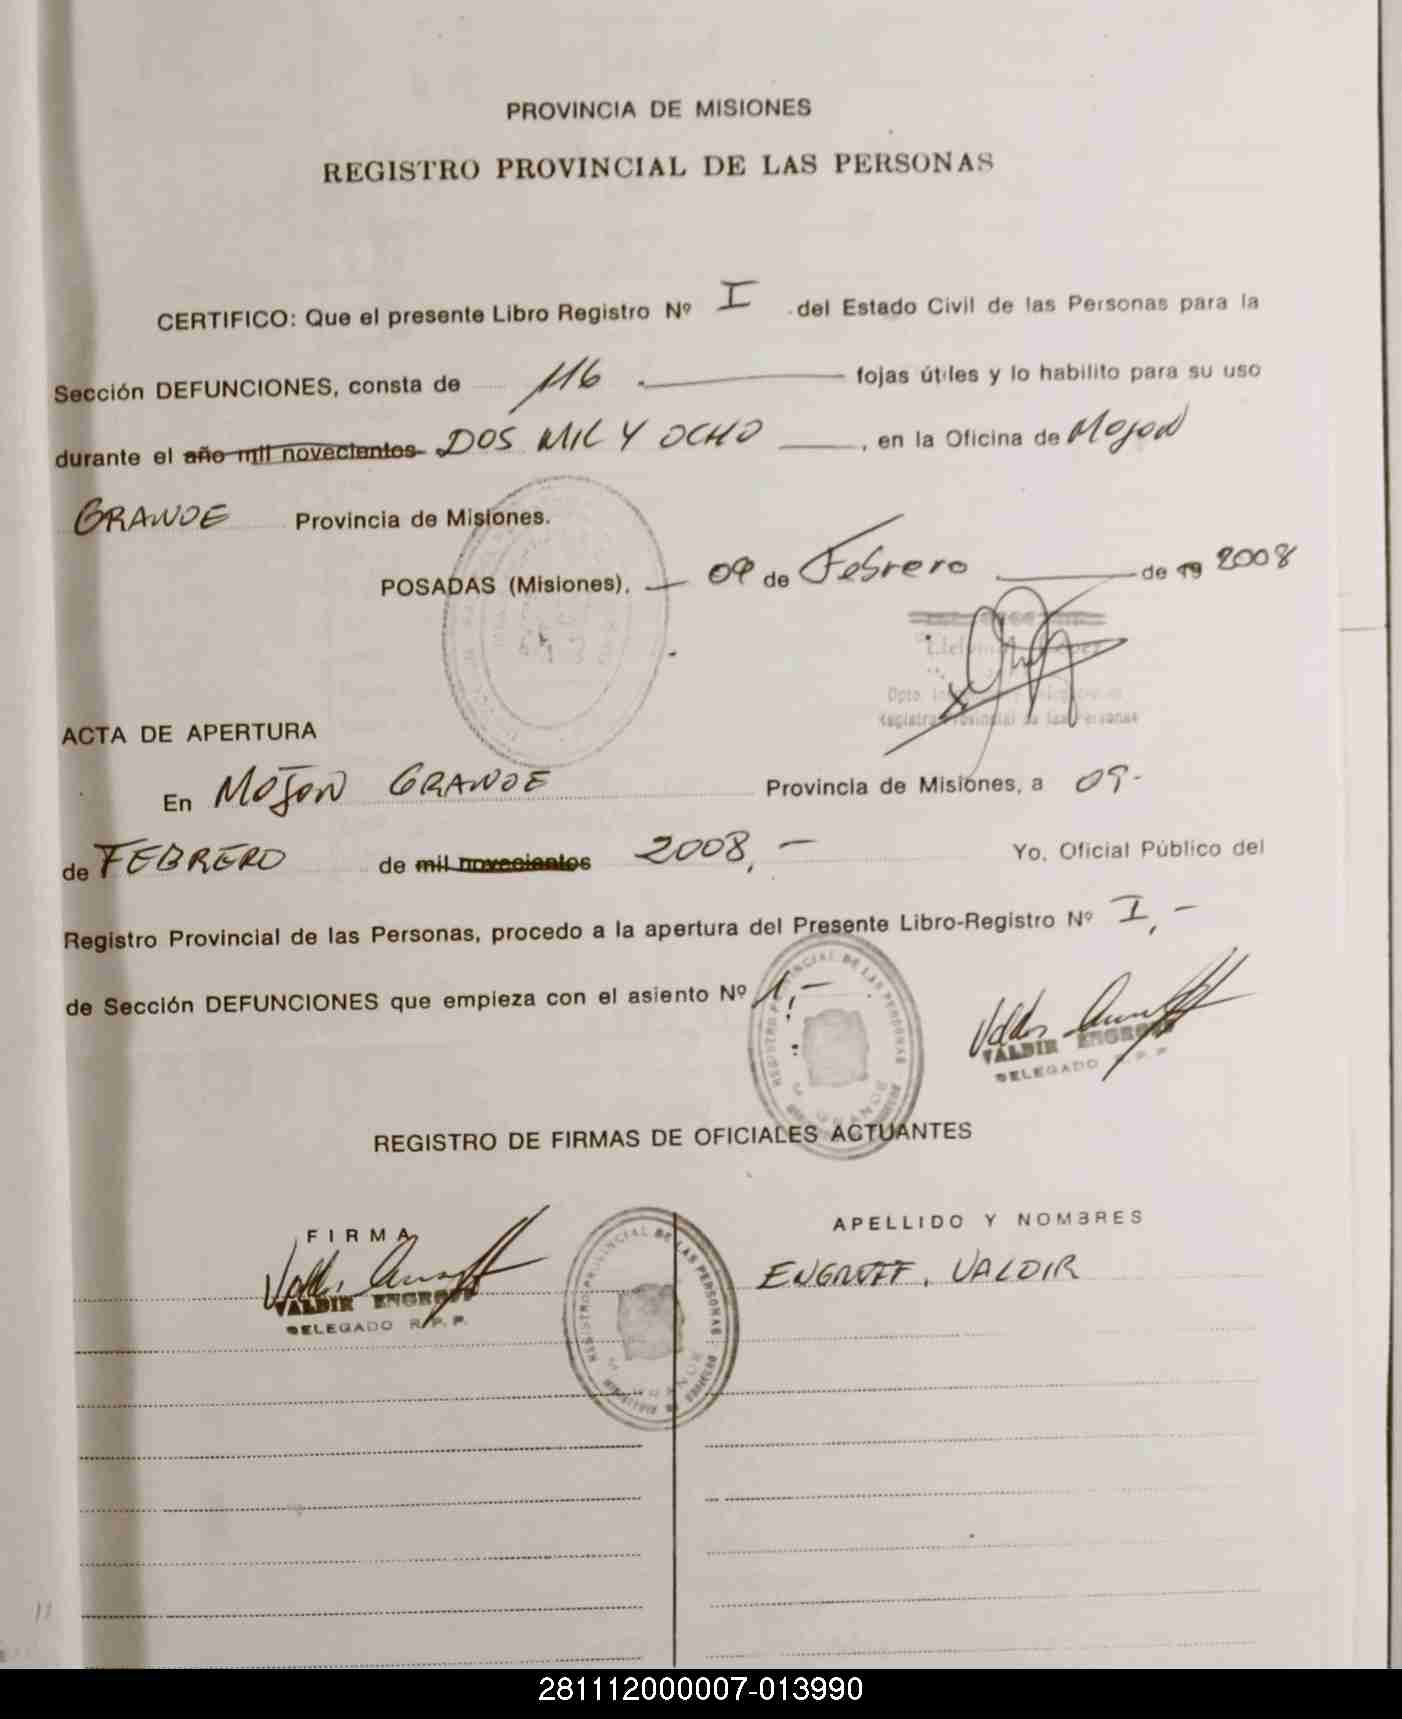 PROVINCIA DE MISIONES
REGISTRO PROVINCIAL DE LAS PERSONAS
CERTIFICO: Que el presente Libro Registro Nº I del Estado Civil de las Personas para la
Sección DEFUNCIONES, consta de 116 fojas útiles y lo habilito para su uso
durante el año mil novecientos DOS MIL Y OCHO, en la Oficina de Mojon
GRANDE Provincia de Misiones.
POSADAS (Misiones), 09 de Febrero de 19 2008
Registro Provincial de las Personas
ACTA DE APERTURA
En MOJON GRANDE Provincia de Misiones, a 09-
de FEBRERO de mil novecientos 2008,- Yo, Oficial Público del
Registro Provincial de las Personas, procedo a la apertura del Presente Libro-Registro Nº I,-
de Sección DEFUNCIONES que empieza con el asiento Nº 1,-
REGISTRO PROVINCIAL DE LAS PERSONAS
GRANDE
VALDIR ENGROFF
DELEGADO R.P.P.
REGISTRO DE FIRMAS DE OFICIALES ACTUANTES
FIRMA APELLIDO Y NOMBRES
ENGROFF, VALDIR
VALDIR ENGROFF
DELEGADO R.P.P.
REGISTRO PROVINCIAL DE LAS PERSONAS
GRANDE
281112000007-013990